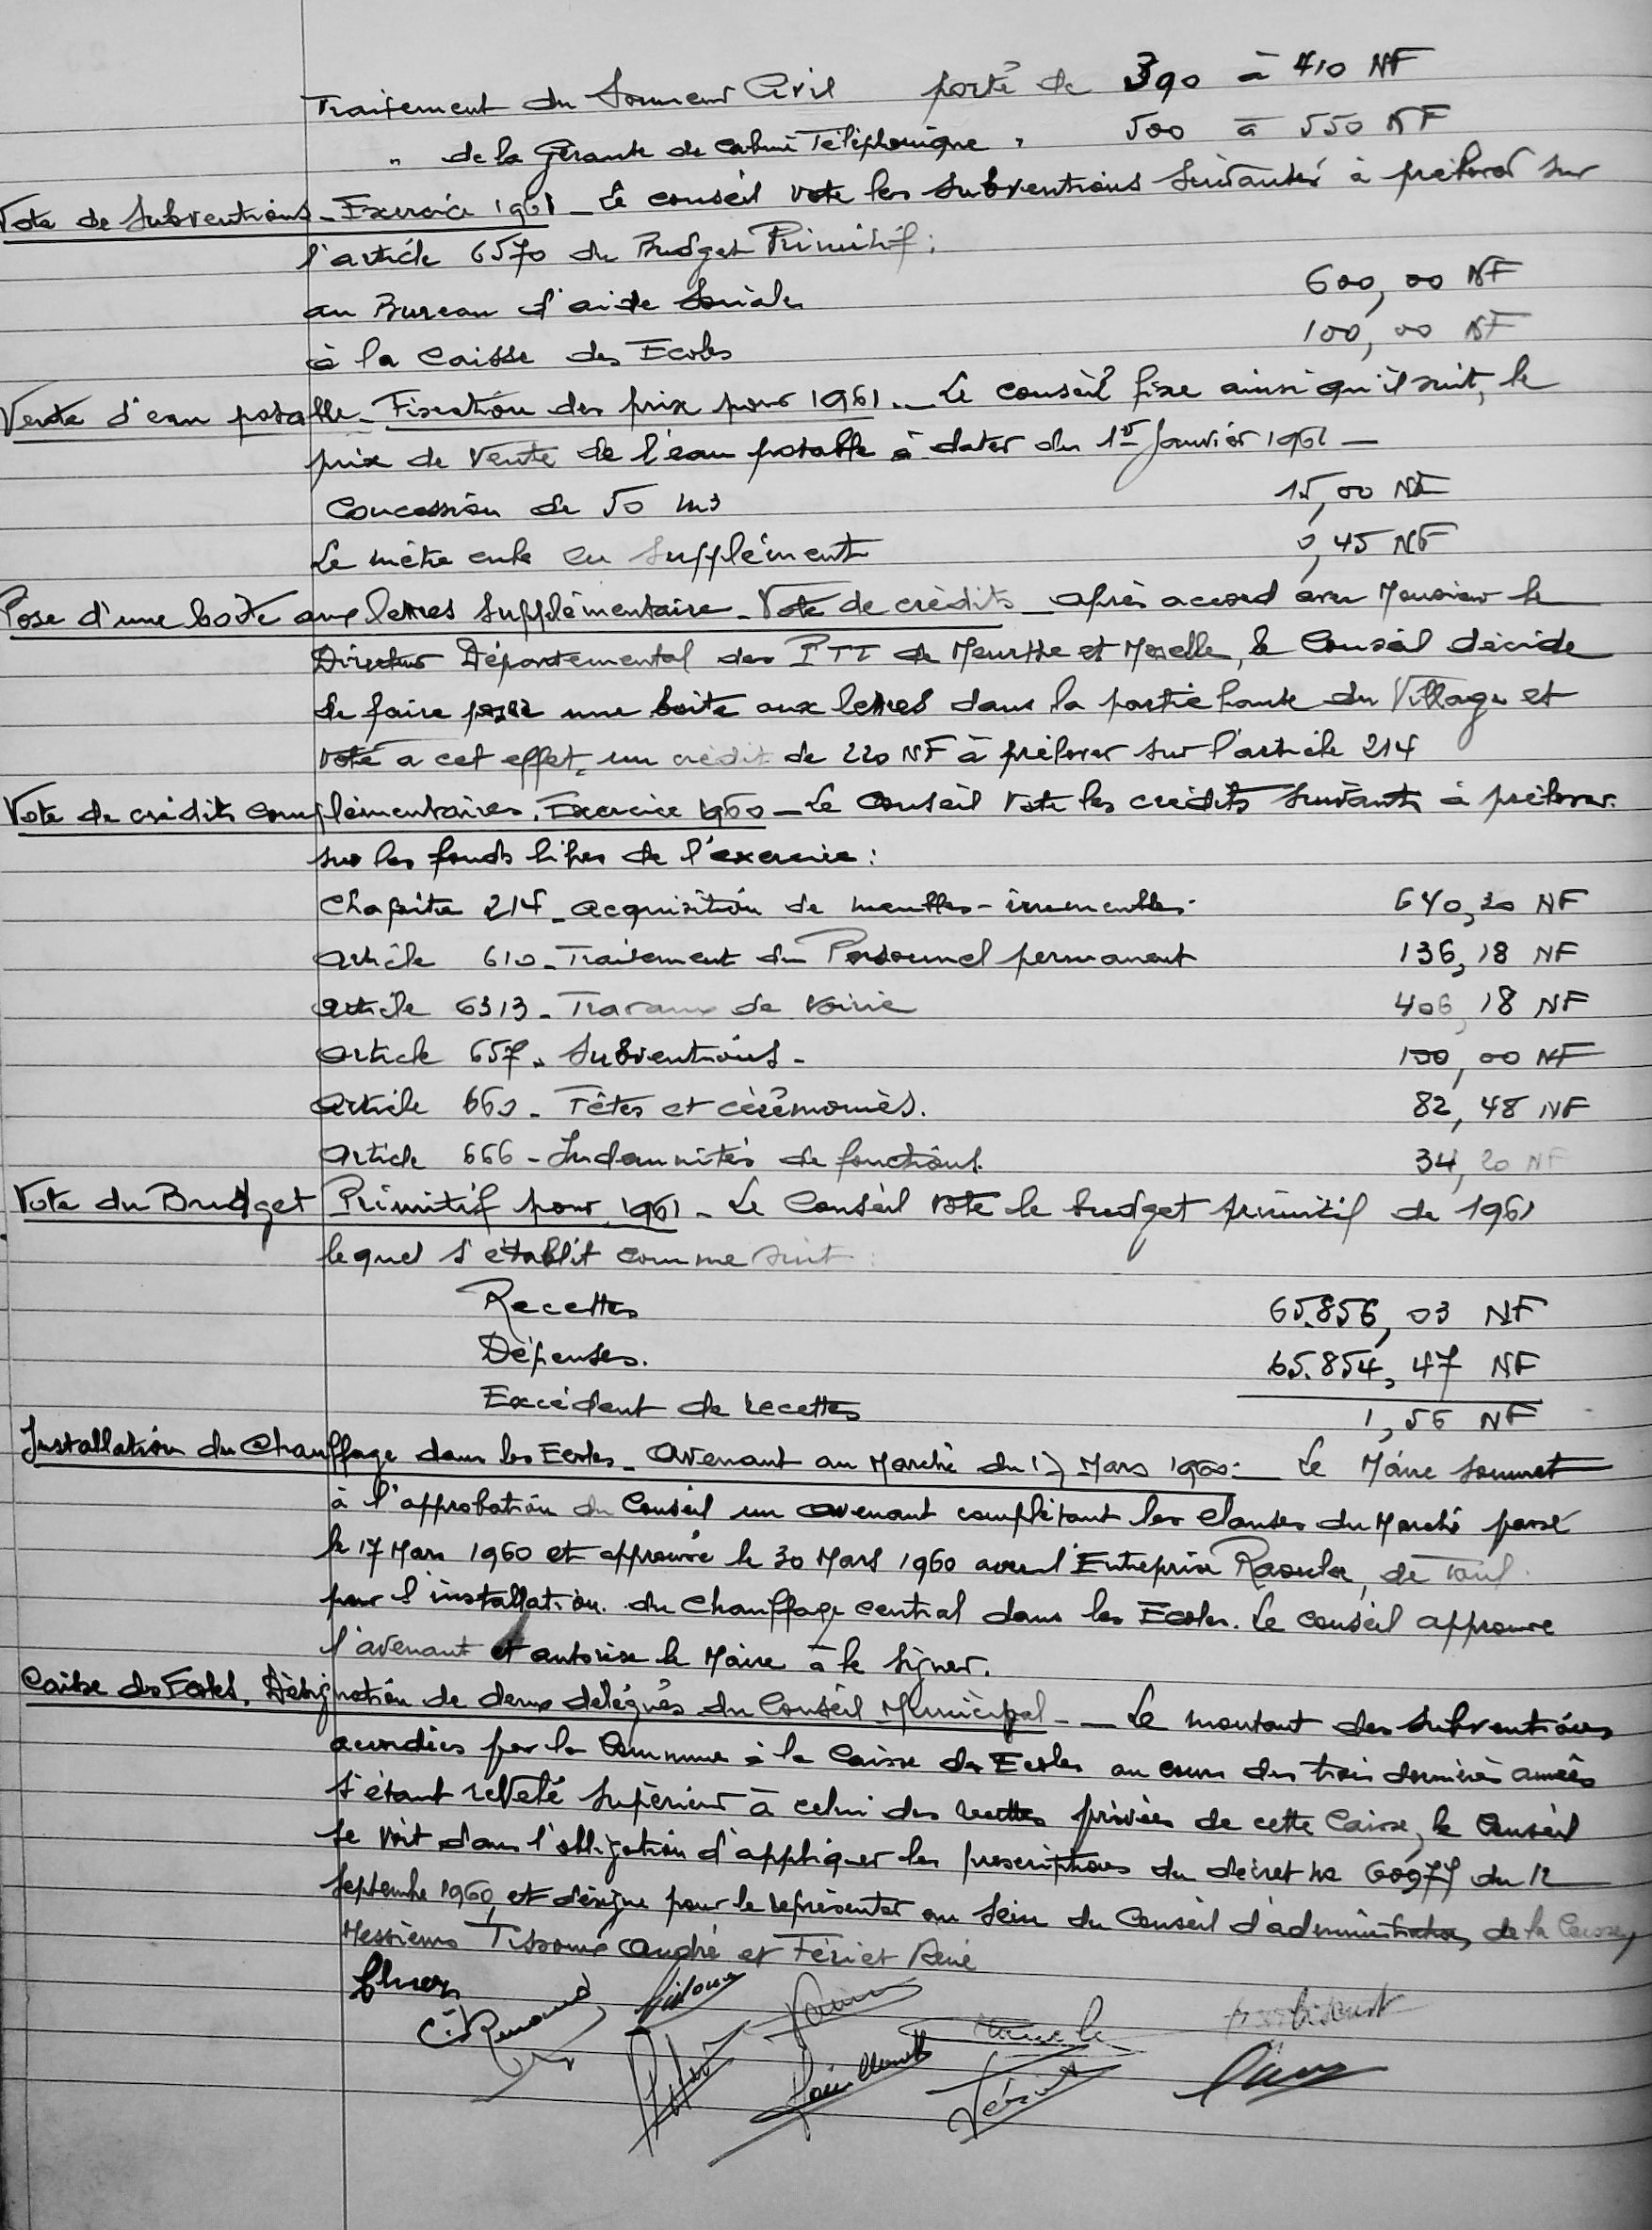 Traitement du Sonneur Civil porté de 390 à 410 NF
" de la Gérante de Cabine Téléphonique " 500 à 550 NF
Vote de Subventions - Exercice 1961 - Le conseil vote les subventions suivantes à prélever sur
l'article 6570 du Budget Primitif :
au Bureau d'aide Sociale 600,00 NF
à la Caisse des Ecoles 100,00 NF
Vente d'eau potable - Fixation des prix pour 1961 - Le conseil fixe ainsi qu'il suit, le
prix de Vente de l'eau potable à dater du 1er Janvier 1961 -
Concession de 50 m3 15,00 NF
Le mètre cube en supplément 0,45 NF
Pose d'une boîte aux lettres supplémentaire - Vote de crédits - après accord avec Monsieur le
Directeur Départemental des PTT de Meurthe et Moselle, le Conseil décide
de faire poser une boite aux lettres dans la partie haute du Village et
vote à cet effet, un crédit de 220 NF à prélever sur l'article 214
Vote de crédits complémentaires. Exercice 1960 - Le Conseil vote les crédits suivants à prélever
sur les fonds libres de l'exercice :
Chapitre 214 - Acquisition de meubles - immeubles - 640,20 NF
Article 610 - Traitement du Personnel permanent 136,18 NF
Article 6313 - Travaux de Voirie 406,18 NF
Article 657 - Subventions - 100,00 NF
Article 660 - Fêtes et cérémonies. 82,48 NF
Article 666 - Indemnités de fonctions. 34,20 NF
Vote du Budget Primitif pour 1961 - Le Conseil vote le budget primitif de 1961
lequel s'établit comme suit :
Recettes 65.856,03 NF
Dépenses. 65.854,47 NF
Excédent de recettes 1,56 NF
Installation du Chauffage dans les Ecoles - Avenant au Marché du 17 Mars 1960 - Le Maire soumet
à l'approbation du Conseil un avenant complétant les clauses du Marché passé
le 17 Mars 1960 et approuvé le 30 Mars 1960 avec l'Entreprise de Toul
pour l'installation du Chauffage central dans les Ecoles. Le conseil approuve
l'avenant et autorise le Maire à le signer.
Caisse des Ecoles. Désignation de deux délégués du Conseil Municipal - Le montant des subventions
accordées par la Commune à la Caisse des Ecoles au cours des trois dernières années
s'étant révélé supérieur à celui des recettes privées de cette Caisse, le Conseil
se voit dans l'obligation d'appliquer les prescriptions du décret no 60977 du 12
Septembre 1960, et désigne pour le représenter au sein du Conseil d'administration de la Caisse,
Messieurs André et Fériet René
C. Renard
Fériet